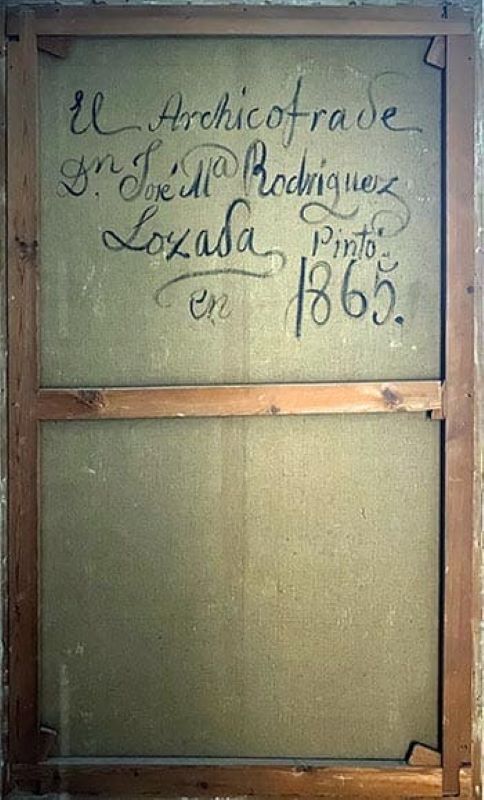 El Archicofrade
Dn. José Ma Rodriguez
Lozada Pintó
en 1865.